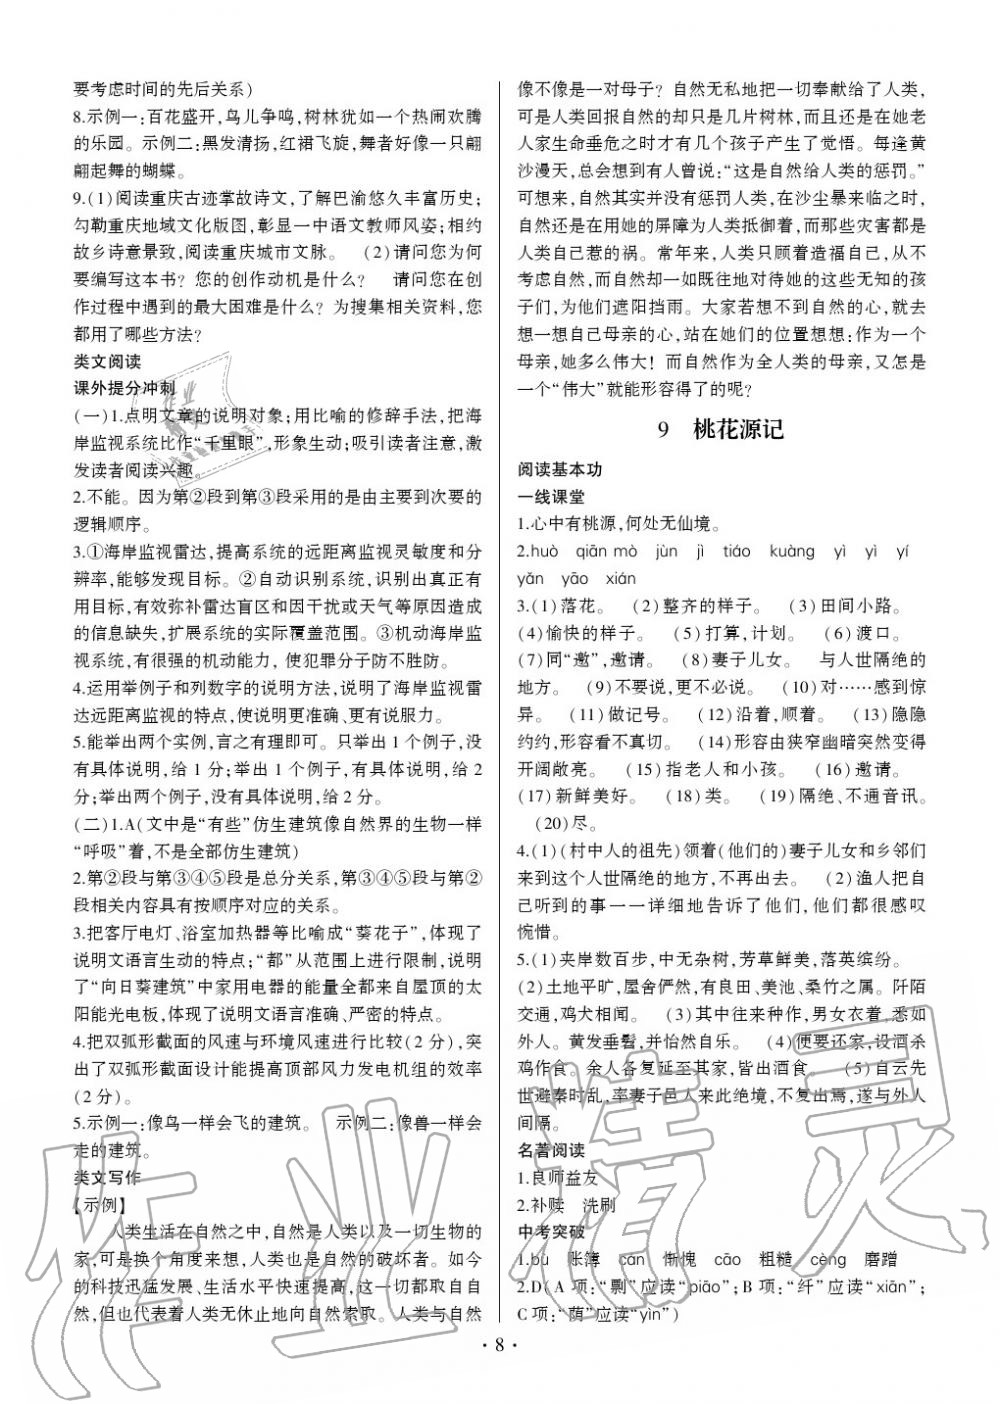 要考虑时间的先后关系)
8.示例一:百花盛开,鸟儿争鸣,树林犹如一个热闹欢腾
的乐园。示例二:黑发清扬,红裙飞旋,舞者好像一只翩
翩起舞的蝴蝶。
9.(1)阅读重庆古迹掌故诗文,了解巴渝悠久丰富历史;
勾勒重庆地域文化版图,彰显一中语文教师风姿;相约
故乡诗意景致,阅读重庆城市文脉。 (2)请问您为何
要编写这本书?您的创作动机是什么? 请问您在创
作过程中遇到的最大困难是什么?为搜集相关资料,您
都用了哪些方法?
类文阅读
课外提分冲刺
(一)1.点明文章的说明对象;用比喻的修辞手法,把海
岸监视系统比作“千里眼”,形象生动;吸引读者注意,激
发读者阅读兴趣。
2.不能。因为第②段到第③段采用的是由主要到次要的
逻辑顺序。
3.①海岸监视雷达,提高系统的远距离监视灵敏度和分
辨率,能够发现目标。②自动识别系统,识别出真正有
用目标,有效弥补雷达盲区和因干扰或天气等原因造成
的信息缺失,扩展系统的实际覆盖范围。③机动海岸监
视系统,有很强的机动能力,使犯罪分子防不胜防。
4.运用举例子和列数字的说明方法,说明了海岸监视雷
达远距离监视的特点,使说明更准确、更有说服力。
5.能举出两个实例,言之有理即可。只举出1个例子,没
有具体说明,给1分;举出1个例子,有具体说明,给2
分;举出两个例子,没有具体说明,给2分。
(二)1.A(文中是“有些”仿生建筑像自然界的生物一样
“呼吸”着,不是全部仿生建筑)
2.第②段与第③④⑤段是总分关系,第③④⑤段与第②
段相关内容具有按顺序对应的关系。
3.把客厅电灯、浴室加热器等比喻成“葵花子”,体现了
说明文语言生动的特点;“都”从范围上进行限制,说明
了“向日葵建筑”中家用电器的能量全都来自屋顶的太
阳能光电板,体现了说明文语言准确、严密的特点。
4.把双弧形截面的风速与环境风速进行比较(2分),突
出了双弧形截面设计能提高顶部风力发电机组的效率
(2分)。
5.示例一:像鸟一样会飞的建筑。 示例二:像兽一样会
走的建筑。
类文写作
【示例】
人类生活在自然之中,自然是人类以及一切生物的
家,可是换个角度来想,人类也是自然的破坏者。如今
的科技迅猛发展、生活水平快速提高,这一切都取自自
然,但也代表着人类无休止地向自然索取。人类与自然
像不像是一对母子?自然无私地把一切奉献给了人类,
可是人类回报自然的却只是几片树林,而且还是在她老
人家生命垂危之时才有几个孩子产生了觉悟。每逢黄
沙漫天,总会想到有人曾说:“这是自然给人类的惩罚。”
可想来,自然其实并没有惩罚人类,在沙尘暴来临之时,
自然还是在用她的屏障为人类抵御着,而那些灾害都是
人类自己惹的祸。常年来,人类只顾着造福自己,从不
考虑自然,而自然却一如既往地对待她的这些无知的孩
子们,为他们遮阳挡雨。大家若想不到自然的心,就去
想一想自己母亲的心,站在她们的位置想想:作为一个
母亲,她多么伟大!而自然作为全人类的母亲,又怎是
一个“伟大”就能形容得了的呢?
9 桃花源记
阅读基本功
一线课堂
1.心中有桃源,何处无仙境。
2.huò qiān mò jùn jì tiáo kuàng yì yì yí
yǎn yāo xián
3.(1)落花。 (2)整齐的样子。 (3)田间小路。
(4)愉快的样子。 (5)打算,计划。 (6)渡口。
(7)同“邀”,邀请。 (8)妻子儿女。 与人世隔绝的
地方。 (9)不要说,更不必说。 (10)对……感到惊
异。 (11)做记号。 (12)沿着,顺着。 (13)隐隐
约约,形容看不真切。 (14)形容由狭窄幽暗突然变得
开阔敞亮。 (15)指老人和小孩。 (16)邀请。
(17)新鲜美好。 (18)类。 (19)隔绝、不通音讯。
(20)尽。
4.(1)(村中人的祖先)领着(他们的)妻子儿女和乡邻们
来到这个人世隔绝的地方,不再出去。 (2)渔人把自
己听到的事一一详细地告诉了他们,他们都很感叹
惋惜。
5.(1)夹岸数百步,中无杂树,芳草鲜美,落英缤纷。
(2)土地平旷,屋舍俨然,有良田、美池、桑竹之属。阡陌
交通,鸡犬相闻。 (3)其中往来种作,男女衣着,悉如
外人。黄发垂髫,并怡然自乐。 (4)便要还家,设酒杀
鸡作食。余人各复延至其家,皆出酒食。 (5)自云先
世避秦时乱,率妻子邑人来此绝境,不复出焉,遂与外人
间隔。
名著阅读
1.良师益友
2.补赎 洗刷
中考突破
1.bù 账簿 cán 惭愧 cāo 粗糙 cèng 磨蹭
2.D(A项:“剽”应读“piāo”;B项:“纤”应读“xiān”;
C项:“荫”应读“yìn”)
·8·
作业精灵